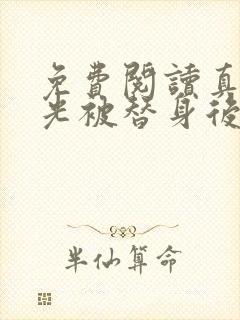 免費閱讀真
光被替身後
半仙算命